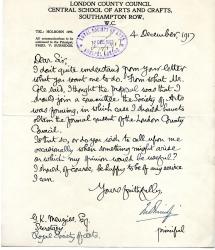 LONDON COUNTY COUNCIL
CENTRAL SCHOOL OF ARTS AND CRAFTS,
SOUTHAMPTON ROW,
W.C.
TEL: HOLBORN
All communications to be
addressed to the Principal,
FRED. V. BURRIDGE.
4 December, 1917
Dear Sir,
I don't quite understand from your letter
what you want me to do. From what Mr.
Cole said, I thought the proposal was that I
should join a committee the Society of Arts
was forming, in which case I should
obtain the formal consent of the London County
Council.
Is that so, or do you said to call upon me
occasionally when something might arise
on which my opinion would be useful?
I should, of course, be happy to be of any service
I am.
Yours faithfully,
G.K. Menzies Esq.
Secretary
Royal Society of Arts.
principal